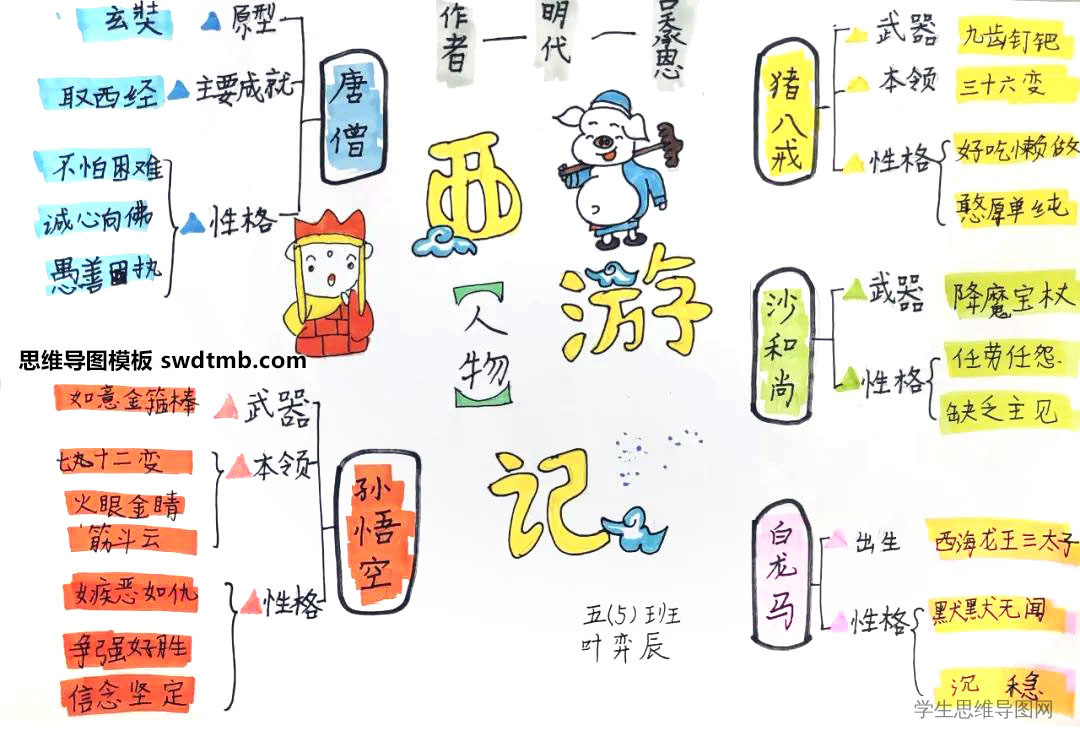 作者 — 明代 — 吴承恩
西游记
【人物】
唐僧
原型
玄奘
主要成就
取西经
性格
不怕困难
诚心向佛
愚善固执
思维导图模板 swdtmb.com
孙悟空
武器
如意金箍棒
本领
七十二变
火眼金睛
筋斗云
性格
嫉恶如仇
争强好胜
信念坚定
猪八戒
武器
九齿钉钯
本领
三十六变
性格
好吃懒做
憨厚单纯
沙和尚
武器
降魔宝杖
性格
任劳任怨.
缺乏主见
白龙马
出生
西海龙王三太子
性格
默默无闻
沉稳
五(5)班
叶弈辰
学生思维导图网